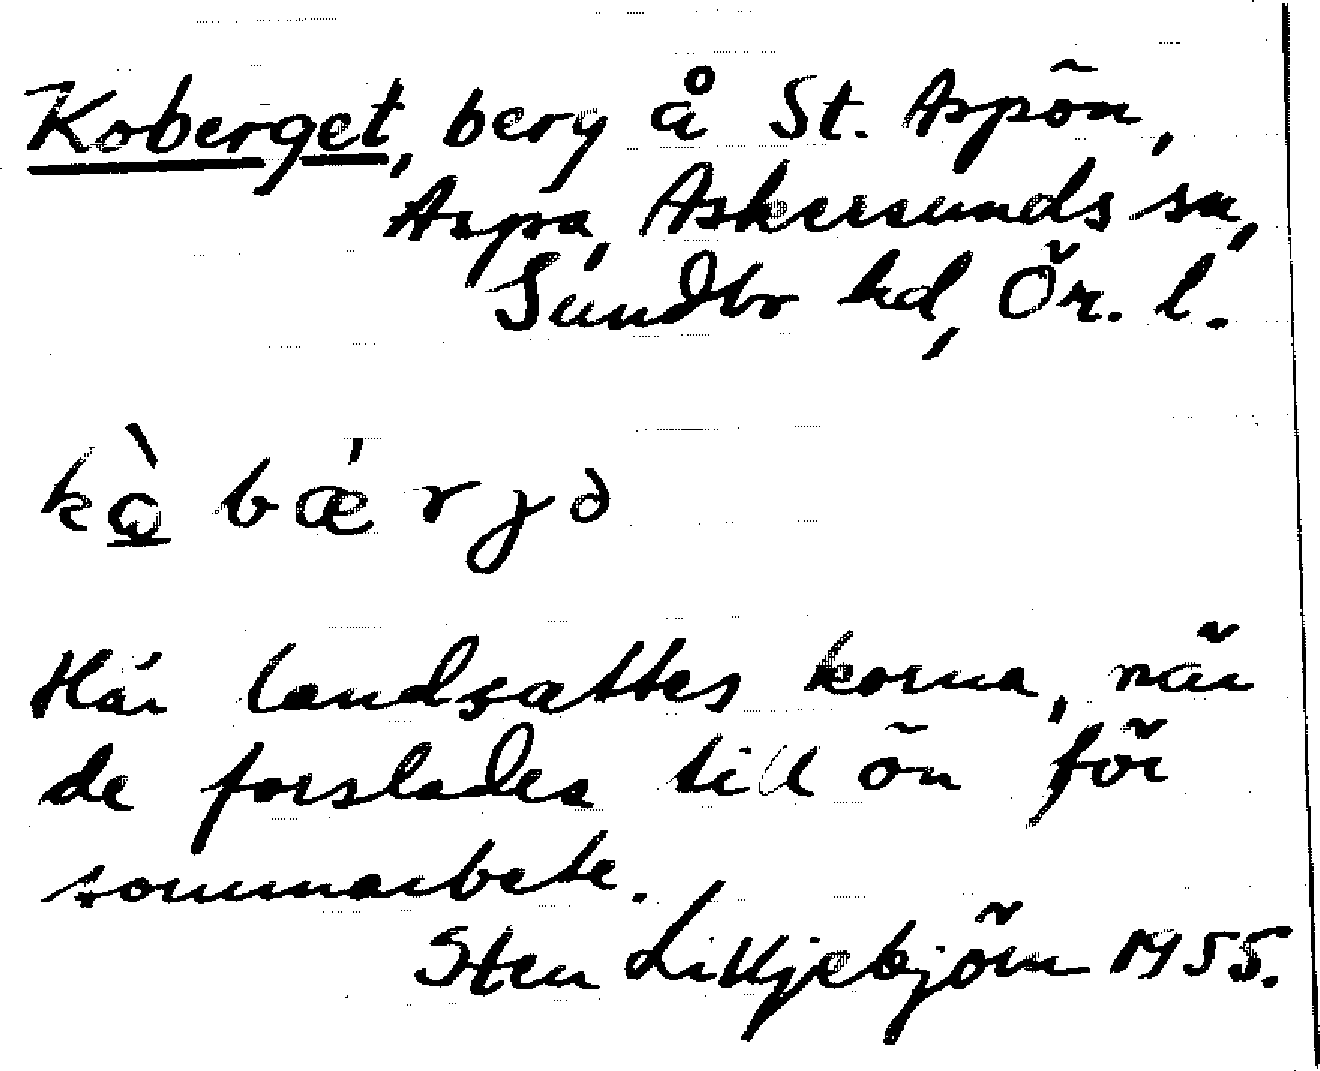 Koberget, berg å St. Aspön,
Aspa, Askersunds sn,
Sundbo hd, Ör. l.
kò̲ bǽ r y ə
Här landsattes korna, när
de forslades till ön för
sommarbete.
Sten Liljebjörn 1955.